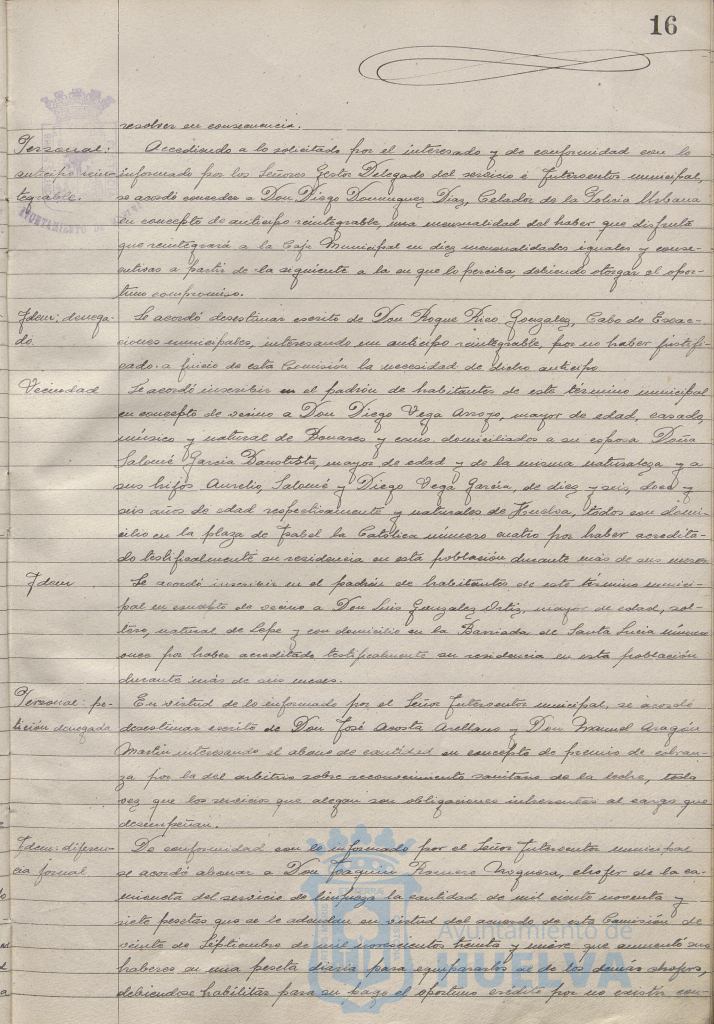 16
resolver en consecuencia.
Personal: anticipo reintegrable.
Accediendo a lo solicitado por el interesado y de conformidad con lo
informado por los Señores Gestor Delegado del servicio é Interventor municipal,
se acordó conceder a Don Diego Dominguez Diaz, Celador de la Policia Urbana
en concepto de anticipo reintegrable, una mensualidad del haber que disfruta
que reintegrará a la Caja Municipal en diez mensualidades iguales y conse-
cutivas a partir de la siguiente a la en que lo perciba, debiendo otorgar el opor-
tuno compromiso.
Idem: denega-
do.
Se acordó desestimar escrito de Don Roque Rico Gonzalez, Cabo de Exac-
ciones municipales, interesando un anticipo reintegrable, por no haber justifi-
cado a juicio de esta Comisión la necesidad de dicho anticipo.
Vecindad
Se acordó inscribir en el padrón de habitantes de este término municipal
en concepto de vecino a Don Diego Vega Arroyo, mayor de edad, casado,
músico y natural de Bonares y como domiciliados a su esposa Doña
Salomé Garcia Bautista, mayor de edad y de la misma naturaleza y a
sus hijos Aurelio, Salomé y Diego Vega Garcia, de diez y seis, doce y
seis años de edad respectivamente y naturales de Huelva, todos con domi-
cilio en la plaza de Isabel la Católica número cuatro por haber acredita-
do testificalmente su residencia en esta población durante más de seis meses
Idem
Se acordó inscribir en el padrón de habitantes de este término munici-
pal en concepto de vecino a Don Luis Gonzalez Ortiz, mayor de edad, sol-
tero, natural de Lepe y con domicilio en la Barriada de Santa Lucia número
once por haber acreditado testificalmente su residencia en esta población
durante más de seis meses.
Personal: pe-
tición denegada
En virtud de lo informado por el Señor Interventor municipal, se acordó
desestimar escrito de Don José Acosta Arellano y Don Manuel Aragón
Martin interesando el abono de cantidad en concepto de premio de cobran-
za por la del arbitrio sobre reconocimiento sanitario de la leche, toda
vez que los servicios que alegan son obligaciones inherentes al cargo que
desempeñan.
Idem: diferen-
cia jornal
De conformidad con lo informado por el Señor Interventor municipal
se acordó abonar a Don Joaquin Romero Noguera, chofer de la ca-
mioneta del servicio de limpieza la cantidad de mil ciento noventa y
siete pesetas que se le adeudan en virtud del acuerdo de esta Comisión de
veinte de Septiembre de mil novecientos treinta y nueve que aumentó sus
haberes en una peseta diaria para equipararlos a los de los demás chofers,
debiendose habilitar para su pago el oportuno crédito por no existir con-
Ayuntamiento de
HUELVA